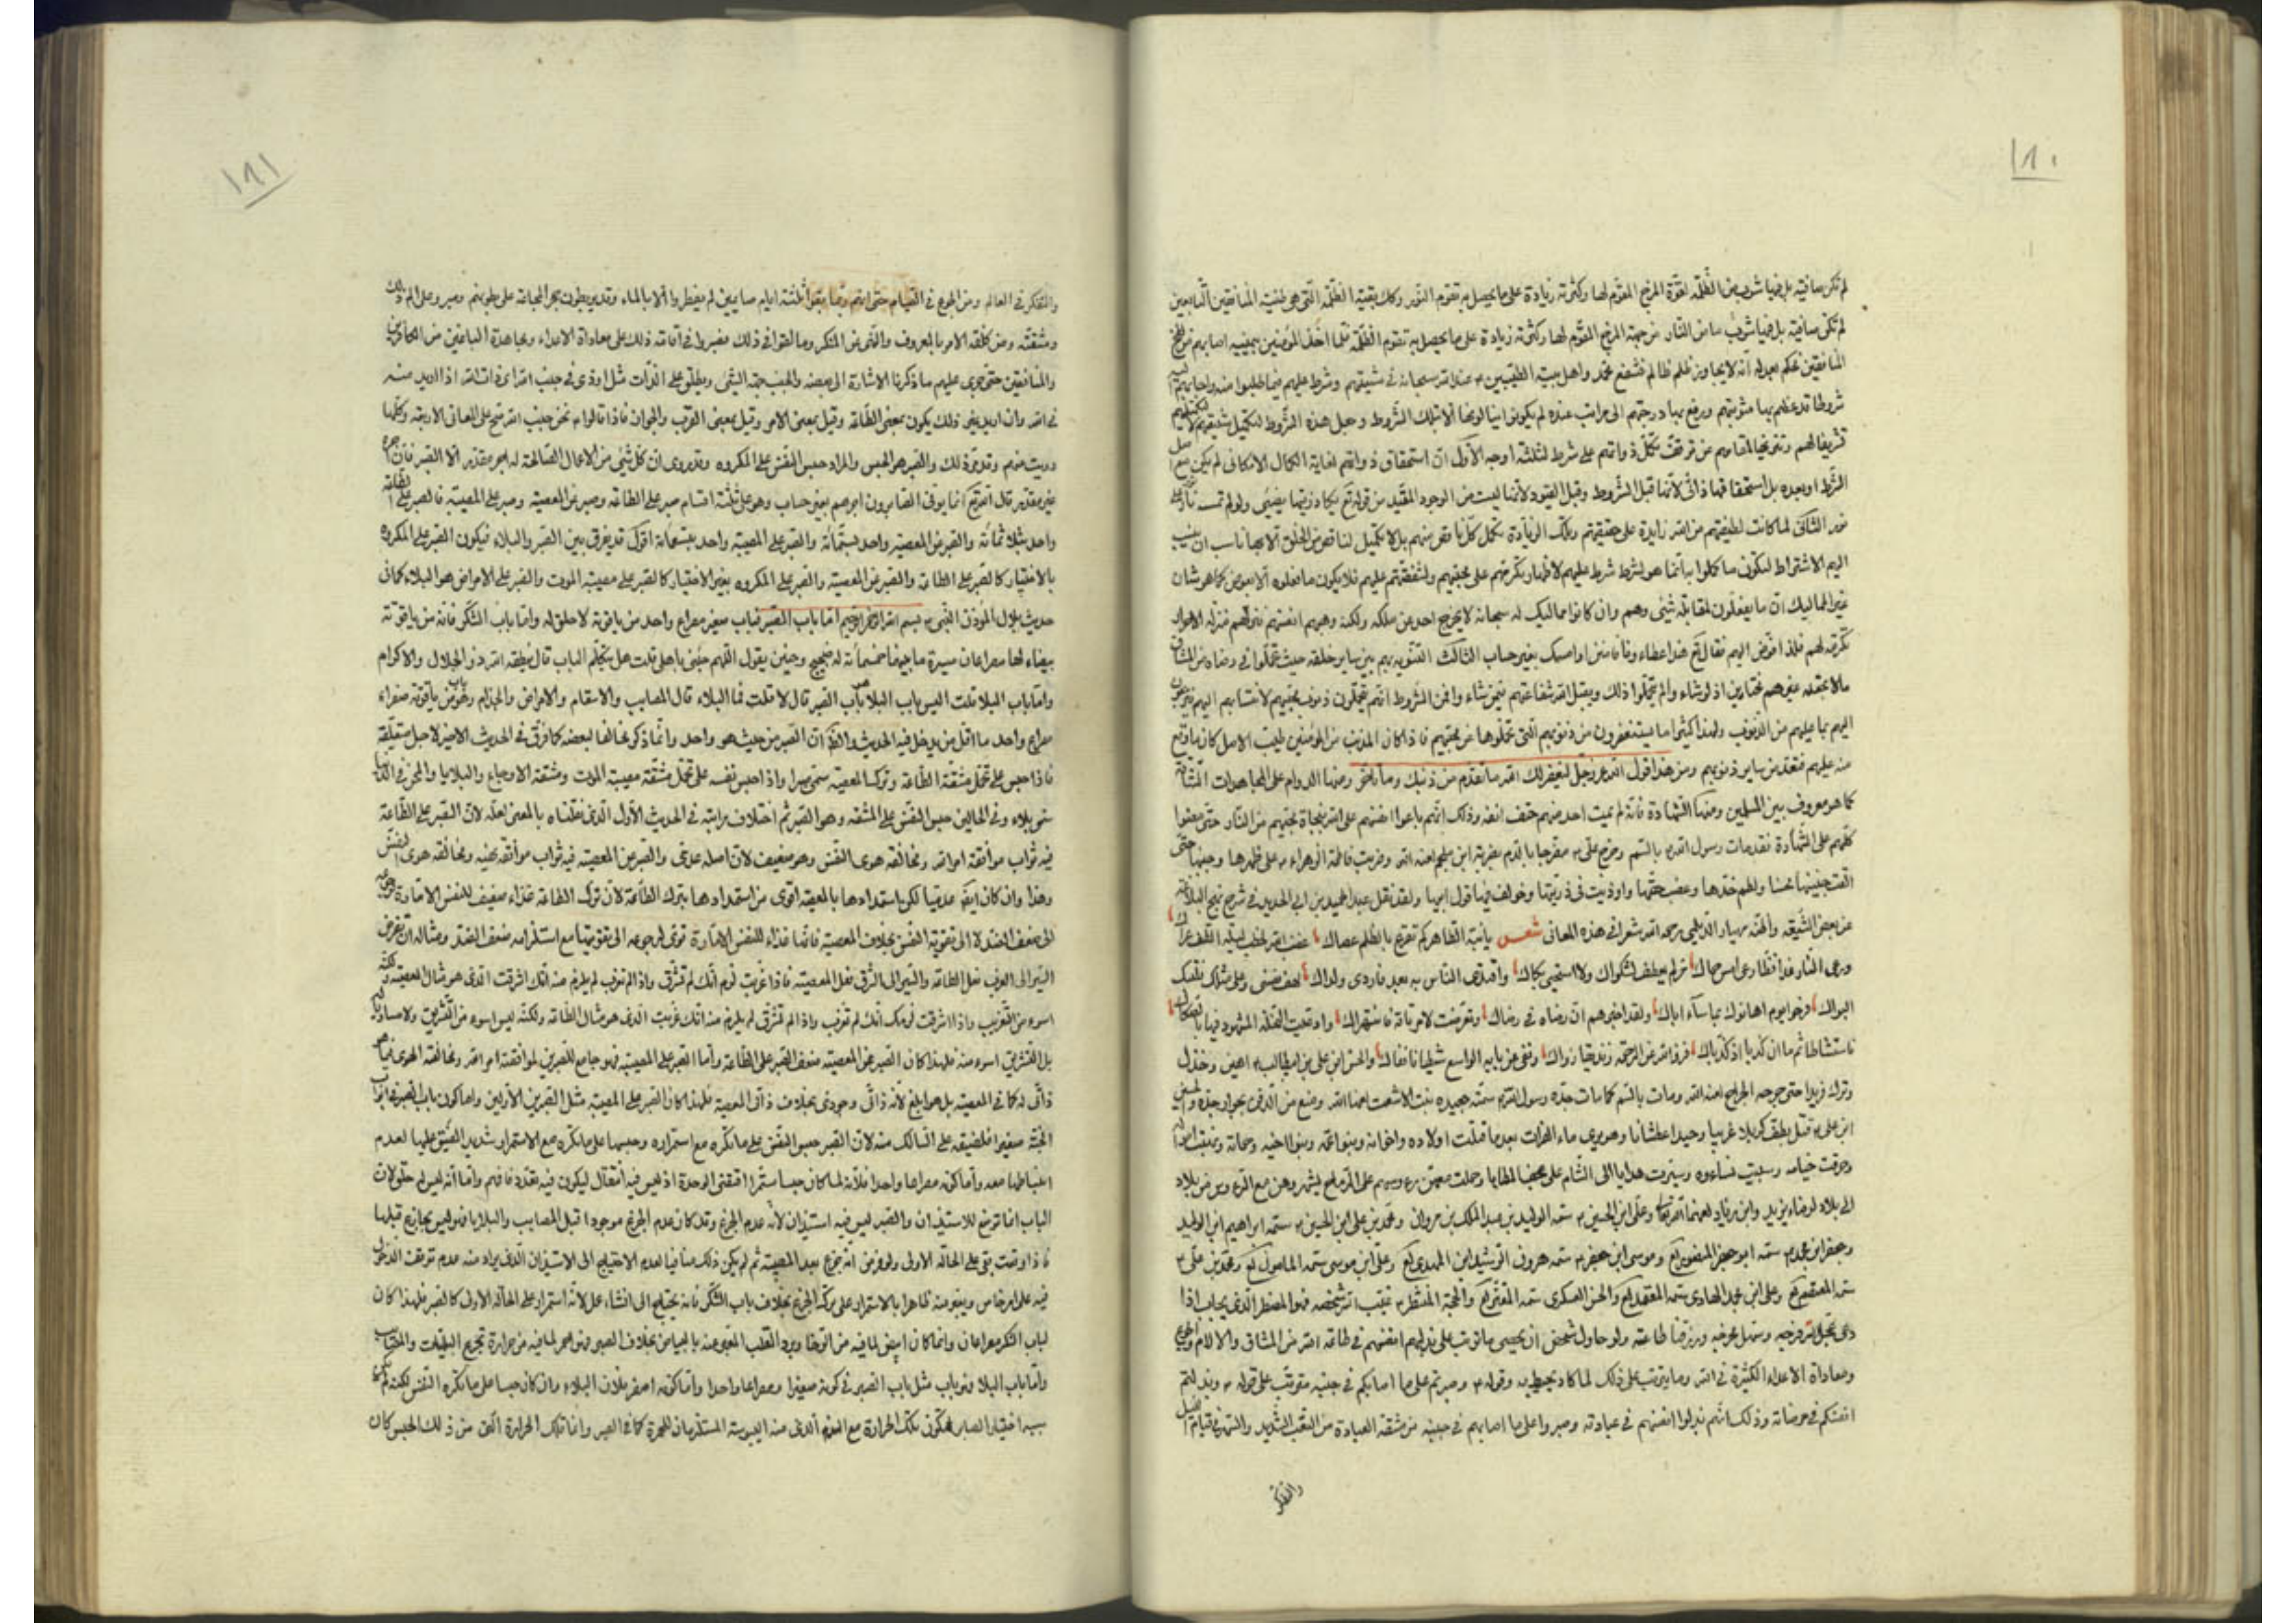 ١٨٠
لم تكن صافية بل فيها شوب من الظلمة لقوة المرجح المقوم لها وكثرته زيادة على ما يحصل به تقوم النور وكك بقية الظلمة التي هي طينة المنافقين التابعين
لم تكن صافية بل فيها شوب ما من النار من جهة المرجح المقوم لها وكثرته زيادة على ما يحصل به تقوم الظلمة فلما اخذ المؤمنين بمحبتهم اصابهم من لطخ
المنافقين فحكم بعدله انه لا يجاوزن ظلم ظالم فشفع محمد واهل بيته الطيبين م عند الله سبحانه في شيعتهم وشرط عليهم فيما طلبوا منه واجابهم اليه
شروطا قد عظم بها مثوبتهم ورفع بها درجتهم الى مراتب عنده لم يكونوا ينالونها الا بتلك الشروط وجعل هذه الشروط لتكميل شيعتهم
تشريفا لهم وتنويها لمقامهم من توقف تكمل ذواتهم على شرط لثلثة اوجه الاول ان استحقاق ذواتهم لغاية الكمال الامكاني لم يكن
الشرط اوبعده بل استحقاقها ذاتي لانها قبل الشروط وقبل القيود لانها ليست من الوجود المقيد من قوله تع يكاد زيتها يضيئ ولو لم تمسسه نار
نور الثاني لما كانت لطيفتهم من الله زايدة على حقيقتهم وتلك الزيادة تكمل كل ناقص منهم بل لا تكميل لناقص من الخلق الا بها ناسب ان ينسب
اليهم الاشتراط لتكون ما كملوا به انما هو بشرط شرط عليهم لاظهار تكرمتهم على محبيهم ولشفقتهم عليهم فلا يكون ما فعلوه الا بعوض كما هو شان
غير المماليك ان ما يفعلون لمقابلة شئ وهم وان كانوا مماليك له سبحانه لا يخرج احد عن ملكه ولكنه وهبهم انفسهم فنزلهم منزلة الاحرار
تكرمة لهم فلذا فوض اليهم فقال تع هذا عطاؤنا فامنن او امسك بغير حساب الثالث التنويه بهم بين ساير خلقه حيث تحملوا في رضاه من المشاق
مالا يحتمله غيرهم مختارين اذ لو شاء والم يتحملوا ذلك ويقبل الله شفاعتهم فيمن شاء وا فمن الشروط انهم يتحملون ذنوب محبيهم لانتسابهم اليهم
اليهم بما عليهم من الذنوب ولهذا كثيرا ما يستغفرون من ذنوبهم التي تحملوها عن محبيهم فاذا كان المذنب من المؤمنين طيب الاصل كان ما وقع
منه عليهم فتعد من ساير ذنوبهم ومن هذا قول الله عز وجل ليغفر لك الله ما تقدم من ذنبك وما تاخر ومنها الدوام على المجاهدات الشاقة
كما هو معروف بين المسلمين ومنها الشهادة فانه لم يمت احد منهم حتف انفه وذلك انهم باعوا انفسهم على الله بنجاة محبيهم من النار حتى مضوا
كلهم على الشهادة فقد مات رسول الله بالسم وخرج علي م مضرجا بالدم بضربة ابن ملجم لعنه الله وضربت فاطمة الزهراء م على ظهرها وجنبها حتى
القت جنينها محسنا ولطم خدها وغصب حقها واوذيت في ذريتها وخولف فيها قول ابيها ولقد نقل عبد الحميد بن ابي الحديد في شرح نهج البلاغة
عن بعض الشيعة واظنه مهيار الديلمي رحمه الله شعرا في هذه المعاني شعر يا ابنة الطاهر كم تقرع بالظلم عصاك غضب الله لخطب ليلة الطف عراك
ورعى النار غدا قط رعى امس حماك مر لم يعطف لشكواك ولا استحيى بكاك واقتدى الناس به بعد فاردى ولداك لهف نفسي وعلى مثلك فلتبك
البواك فرحوا يوم اهانوك بما ساء اباك ولقد اخبرهم ان رضاه في رضاك وتعرضت لامر تافه فانتهراك وادعيت النحلة المشهود فيها بالصكاك
فاستشاطا ثم ما ان كذبا اذ كذباك فزوى الله عن الرحمة زنديقا زواك ونفى عن بابه الواسع شيطانا نفاك والحسن ابن علي بن ابيطالب م اهين وخذل
وترك فريدا حتى جرحه الجراح لعنه الله ومات بالسم كما مات جده رسول الله سمته جعيده بنت الاشعث لعنها الله ومنع من الدفن بجوار جده والحسين
ابن علي م قتل بطف كربلا غريبا وحيدا عطشانا وهو يرى ماء الفرات بعد ما قتلت اولاده واخوانه وبنو عمه وبنو اخيه وحماته
وحرقت خيامه وسبيت نساءه وسيرت هدايا الى الشام على عجف المطايا وحملت معهن رؤسهم على الرماح يشهروهن مع الرؤس من بلاد
الى بلاد لرضاء يزيد وابن زياد لعنهما الله وعلي ابن الحسين م سمه الوليد بن عبد الملك بن مروان ومحمد بن علي ابن الحسين م سمه ابراهيم ابن الوليد
وجعفر ابن محمد م سمه ابو جعفر المنصور لع وموسى ابن جعفر م سمه هرون الرشيد ابن المهدي لع وعلي ابن موسى سمه المامون لع ومحمد بن علي م
سمه المعتصم لع وعلي ابن محمد الهادي سمه المعتمد لع والحسن العسكري سمه المعتز لع والحجة المنتظر م غيب الله شخصه فهو المضطر الذي يجاب اذا
دعى عجل الله فرجه وسهل مخرجه ورزقنا طاعته ولو حاول شخص ان يحصي ما ترتب على بذلهم انفسهم في طاعة الله من المشاق والالام
ومعاداة الاعداء الكثيرة في الله وما يترتب على ذلك لما كاد يحيط به وقوله م وصبرتم على ما اصابكم في جنبه مترتب على قوله م وبذلتم
انفسكم في مرضاته وذلك انهم بذلوا انفسهم في عبادته وصبروا على ما اصابهم في جنبه من مشقة العبادة من التعب الشديد والسهر في قيام الليل
والتفكر
١٨١
والتفكر في العالم ومن الجوع في الصيام حتى انهم ربما بقوا ثلثة ايام صايمين لم يفطروا الا بالماء وقد يربطون حجر المجاعة على بطونهم وصبر وعلى الم ذلك
ومشقته ومن كلفة الامر بالمعروف والنهى عن المنكر وما لقوا في ذلك فصبروا في اقامة ذلك على معاداة الاعداء ومجاهدة الباغين من الكافرين
والمنافقين حتى جرى عليهم ما ذكرنا الاشارة الى بعضه والجنب جهة الشئ ويطلق على الذات مثل اوذي في جنب الله اي في ذات الله اذا اريد منه
في الله وان اريد غير ذلك يكون بمعنى الطاعة وقيل بمعنى الامر وقيل بمعنى القرب والجوار فاذا قالوا م نحن جنب الله صح على المعاني الاربعة وكلها
رويت عنهم وقد مر ذلك والصبر هو الحبس والمراد حبس النفس على المكروه وقد روى ان كل شئ من الاعمال الصالحة له اجر مقدر الا الصبر فان اجره
غير مقدر قال الله تع انما يوفى الصابرون اجرهم بغير حساب وهو على ثلثة اقسام صبر على الطاعة وصبر عن المعصية وصبر على المصيبة فالصبر على الطاعة
واحد بثلاثمائة والصبر عن المعصية واحد بستمائة والصبر على المصيبة واحد بتسعمائة اقول قد يفرق بين الصبر والبلاء فيكون الصبر على المكروه
بالاختيار كالصبر على الطاعة والصبر عن المعصية والصبر على المكروه بغير الاختيار كالصبر على مصيبة الموت والصبر على الامراض هو البلاء كما في
حديث بلال المؤذن النبي م بسم الله الرحمن الرحيم اما باب الصبر فباب صغير مصراع واحد من ياقوتة لا حلق له واما باب الشكر فانه من ياقوتة
بيضاء لها مصراعان مسيرة ما بينهما خمسمائة له ضجيج وحنين يقول اللهم جئني باهلي قلت هل يتكلم الباب قال ينطقه الله ذو الجلال والاكرام
واما باب البلا قلت اليس باب البلا باب الصبر قال لا قلت فما البلاء قال المصايب والاسقام والامراض والجذام وهو باب من ياقوتة صفراء
مصراع واحد ما اقل من يدخل فيه الحديث والظ ان الصبر من حيث هو واحد وانما ذكر مخالفا لبعضه كما فرق في الحديث الاخير لاجل متعلقه
فاذا حبس على تحمل مشقة الطاعة وترك المعصية سمي صبرا واذا حبس نفسه على تحمل مشقة مصيبة الموت ومشقة الاوجاع والبلايا والمحن في الدنيا
سمي بلاء وفي الحالين حبس النفس على المشقة وهو الصبر ثم اختلاف مراتبه في الحديث الاول الذي نقلناه بالمعنى لعله لان الصبر على الطاعة
فيه ثواب موافقة امر الله ومخالفة هوى النفس وهو ضعيف لان اصله عدمي والصبر عن المعصية فيه ثواب موافقة نهيه ومخالفة هوى النفس
وهذا وان كان ايضا عدميا لكن استمدادها بالمعصية اقوى من استمدادها بترك الطاعة لان ترك الطاعة غذاء ضعيف للنفس الامارة
الى ضعف الضد لا الى تقوية النفس بخلاف المعصية فانها غذاء للنفس الامارة قوي لرجوعه الى تقويتها مع استلزامه ضعف الضد ومثاله ان تفرض
السير الى الغرب فعل الطاعة والسير الى الشرق فعل المعصية فاذا غربت لزم انك لم تشرق واذا لم تغرب لم يلزم منه انك اشرقت الذي هو مثال المعصية ولكنه
اسوء من التغريب واذا اشرقت لزمك انك لم تغرب واذا لم تشرق لم يلزم منه انك غربت الذي هو مثال الطاعة ولكنه ليس اسوء من التشريق ولا مساويا
بل التشريق اسوء منه فلهذا كان الصبر عن المعصية ضعف الصبر على الطاعة واما الصبر على المصيبة فهو جامع للصبرين لموافقة امر الله ومخالفة الهوى
ذاتي له كما في المعصية بل هو ابلغ لانه ذاتي وجودي بخلاف ذاتي المعصية فلهذا كان الصبر على المصيبة مثل الصبرين الاولين واما كون باب الصبر في ابواب
الجنة صغيرا فلضيقه على السالك منه لان الصبر حبس النفس على ما تكره مع استمراره وحبسها على ما تكره مع الاستمرار شديد الضيق عليها لعدم
انبساطها معه واما كونه مصراعا واحدا فلانه لما كان حبسا مستمرا اقتضى الوحدة اذ ليس فيه انتقال ليكون فيه تعدد فافهم واما انه ليس له حلق لان
الباب انما توضع للاستيذان والصبر ليس فيه استيذان لانه عدم الجزع وقد كان عدم الجزع موجودا قبل المصايب والبلايا فهو ليس بجازع قبلها
فاذا وقعت بقي على الحالة الاولى ولو فرض انه جزع بعد المصيبة ثم لم يكن ذلك منافيا لعدم الاحتياج الى الاستيذان الذي يراد منه عدم توقف الدخول
فيه على امر خاص ويبقى منه ظاهرا بالاستمرار على تركه الجزع بخلاف باب الشكر فانه يحتاج الى انشاء عمل لانه استمرار على الحالة الاولى كالصبر فلهذا كان
لباب الشكر مصراعان وانما كان ابيض لما فيه من الرضا وبرد القلب المعبر عنه بالبياض بخلاف الصبر فهو احمر لما فيه من حرارة تجرع البليات والمصايب
واما باب البلا فهو باب مثل باب الصبر في كونه صغيرا ومصراعا واحدا واما كونه اصفر فلان البلاء وان كان حبسا على ما تكره النفس لكنه
سببه اختيار الصابر لتكون تلك الحرارة مع النوم الذي منه اليبوسة المستلزمان للحمرة كما في الصبر وانما تلك الحرارة التي من ذلك الحبس كان